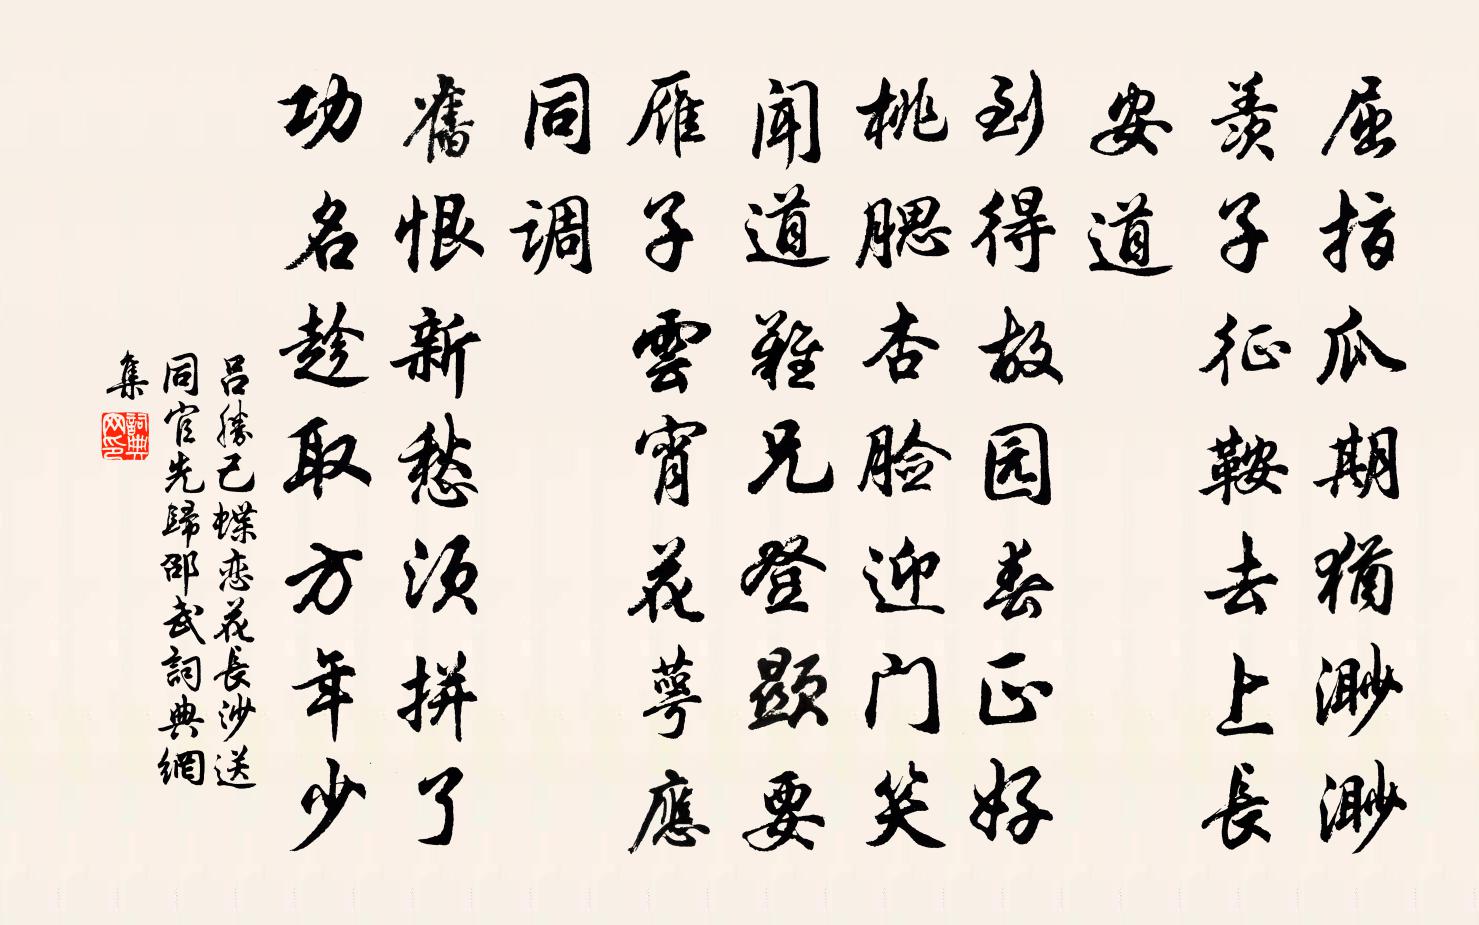 屈指瓜期犹渺渺
羡子征鞍去上長
安道
到得故园春正好
桃腮杏脸迎门笑
闻道難兄登顕要
雁子雲霄花萼應
同调
舊恨新愁须拼了
功名趁取方年少
吕勝己蝶恋花長沙送
同官先歸邵武詞典網
集
詞典网印